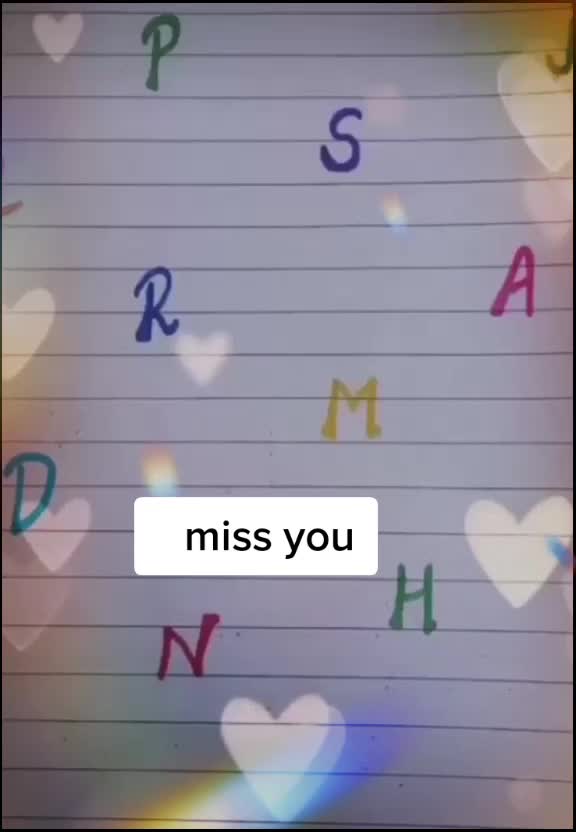 P
S
R
A
M
D
miss you
H
N